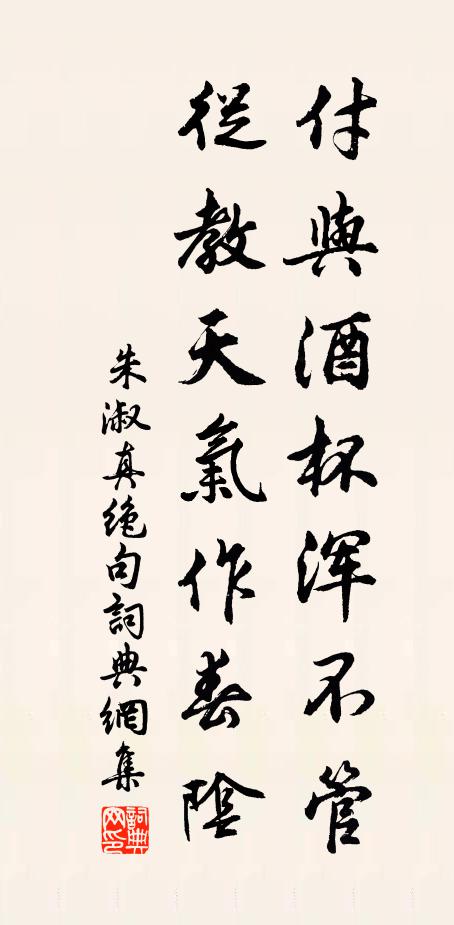 付與酒杯浑不管
從教天氣作春陰
朱淑真绝句詞典網集
詞典网印